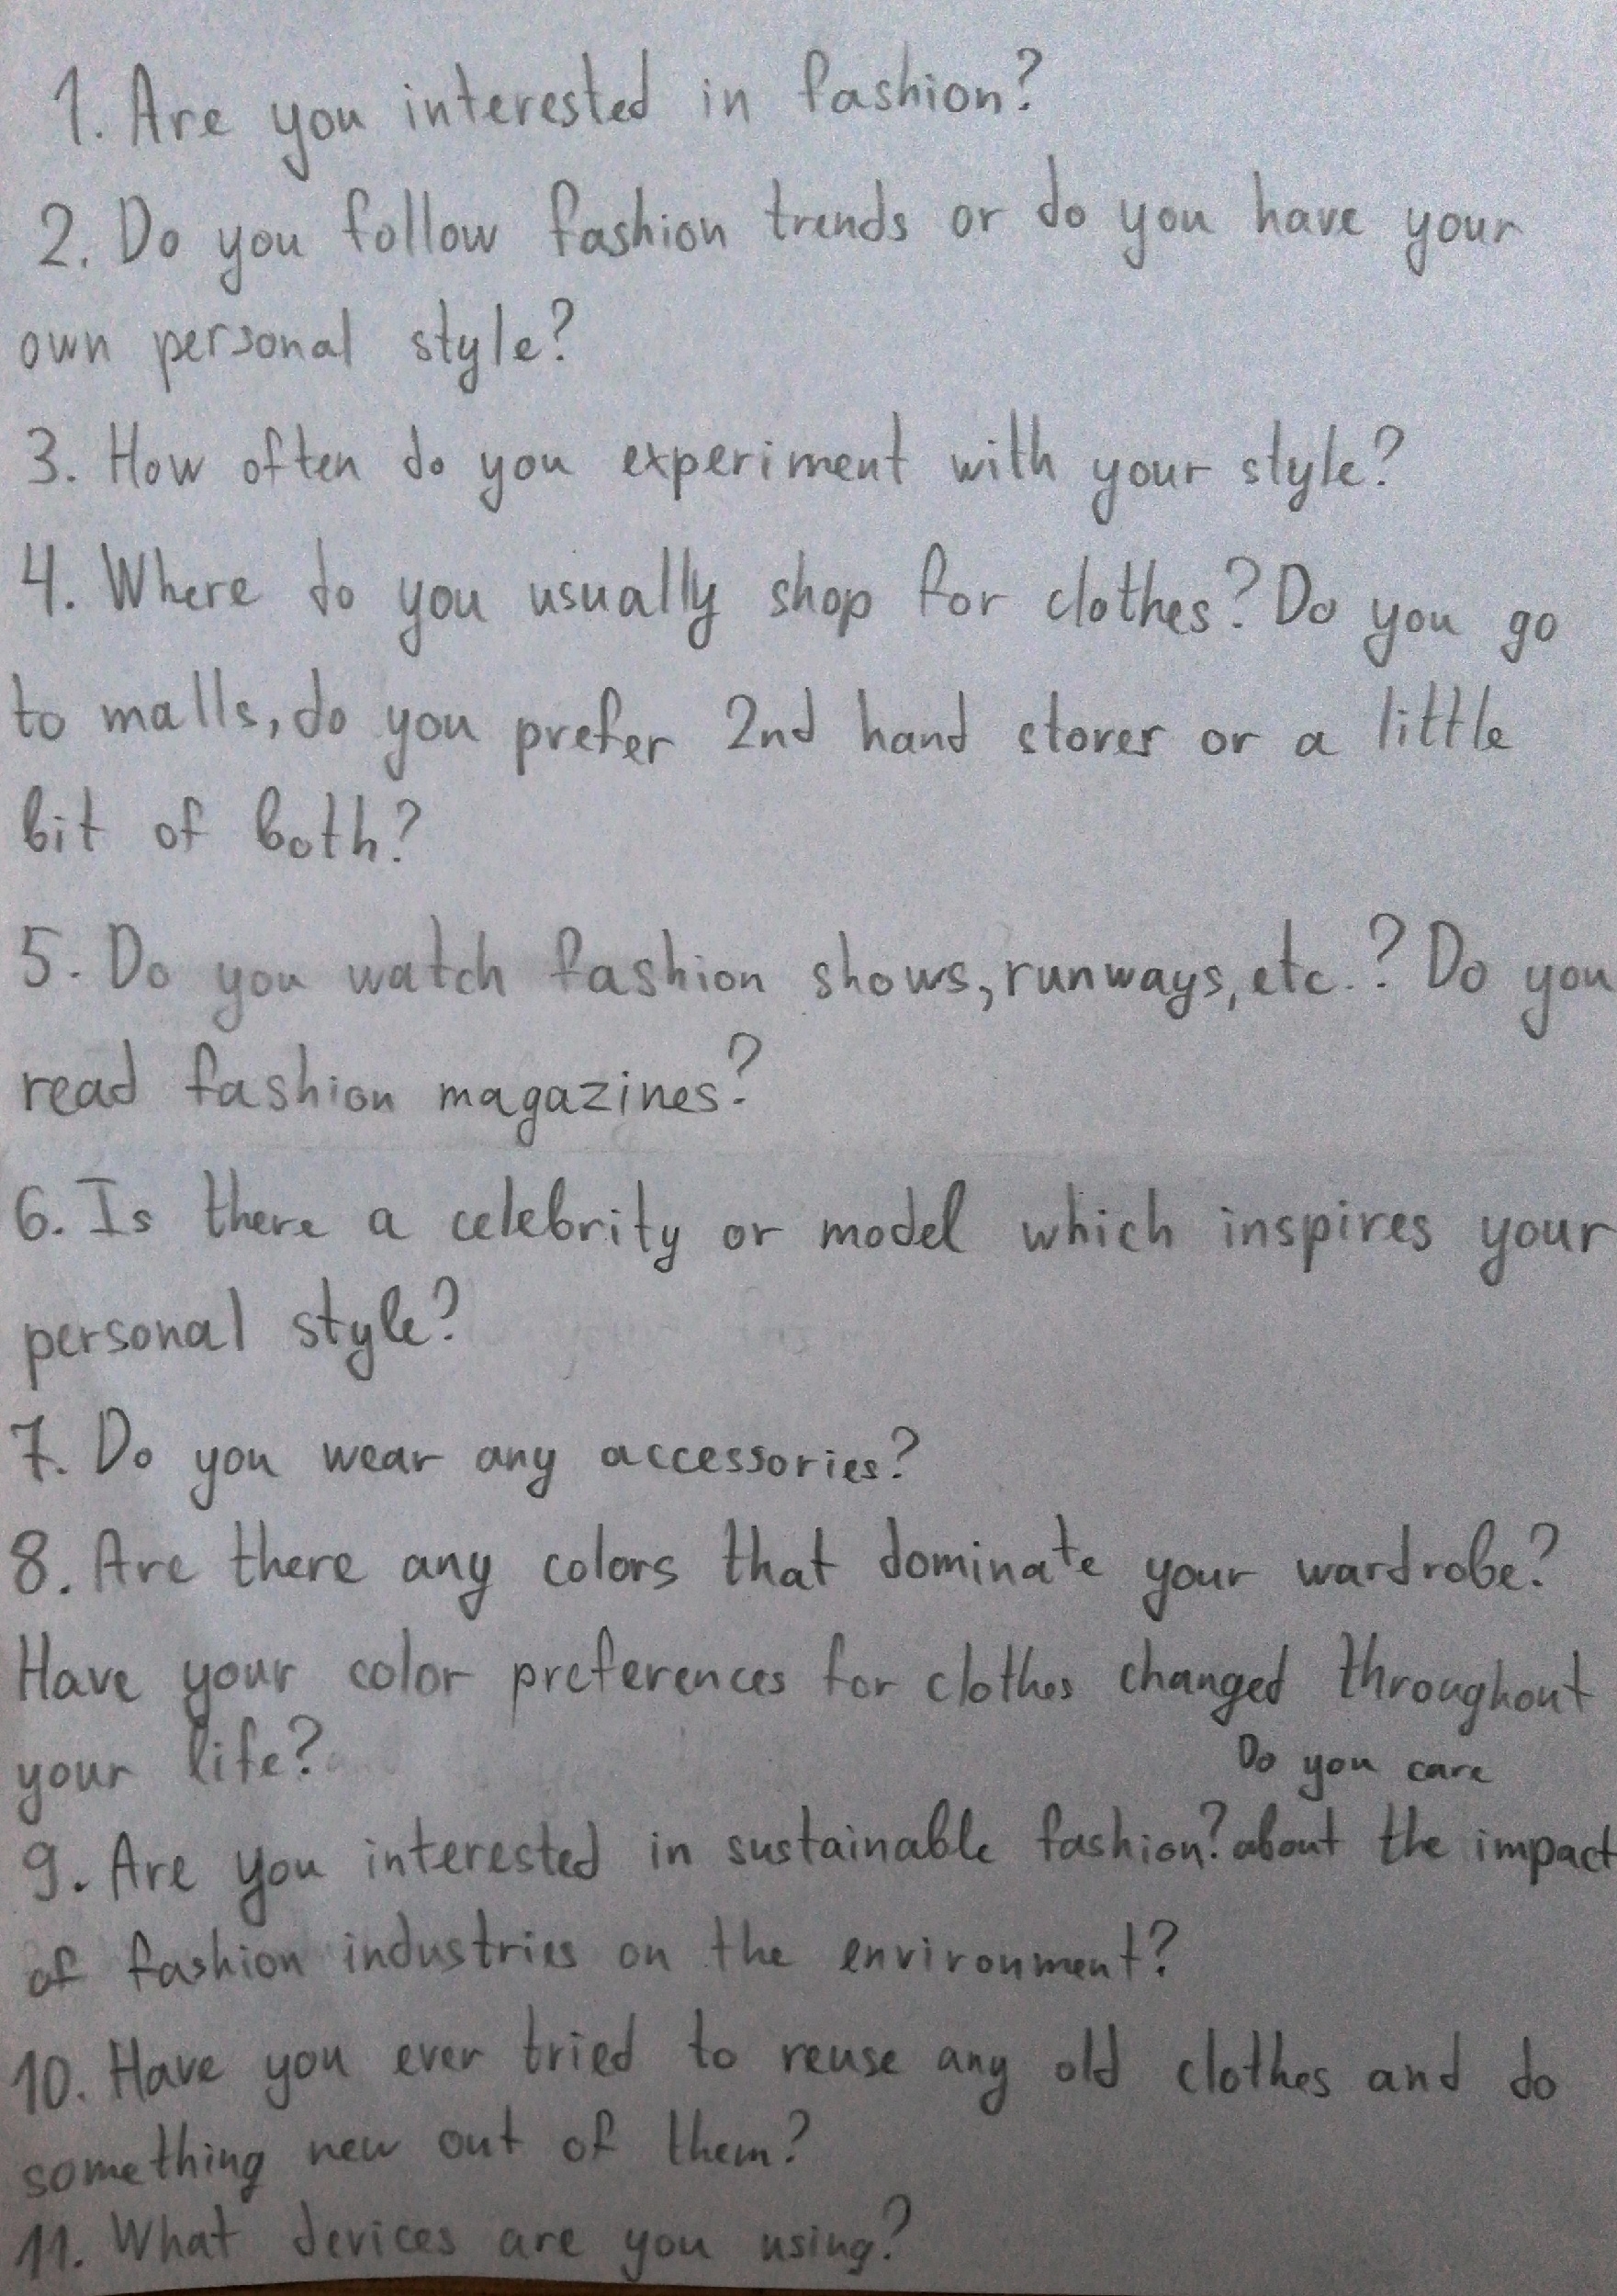 1. Are you interested in fashion?
2. Do you follow fashion trends or do you have your
own personal style?
3. How often do you experiment with your style?
4. Where do you usually shop for clothes? Do you go
to malls, do you prefer 2nd hand stores or a little
bit of both?
5. Do you watch fashion shows, runways, etc.? Do you
read fashion magazines?
6. Is there a celebrity or model which inspires your
personal style?
7. Do you wear any accessories?
8. Are there any colors that dominate your wardrobe?
Have your color preferences for clothes changed throughout
your life?
9. Are you interested in sustainable fashion? Do you care
about the impact
of fashion industries on the environment?
10. Have you ever tried to reuse any old clothes and do
something new out of them?
11. What devices are you using?